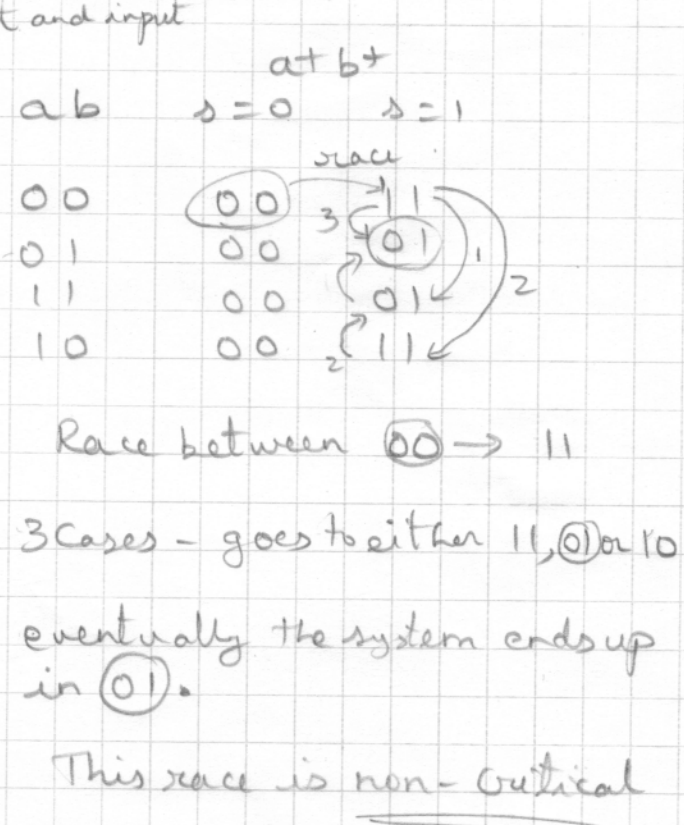 t and input
a+ b+
a b s = 0 s = 1
race
0 0 0 0 1 1
3
0 1 0 0 0 1 1
1 1 0 0 0 1 2
1 0 0 0 2 1 1
Race between 00 → 11
3 Cases - goes to either 11, 01 or 10
eventually the system ends up
in 01.
This race is non-critical